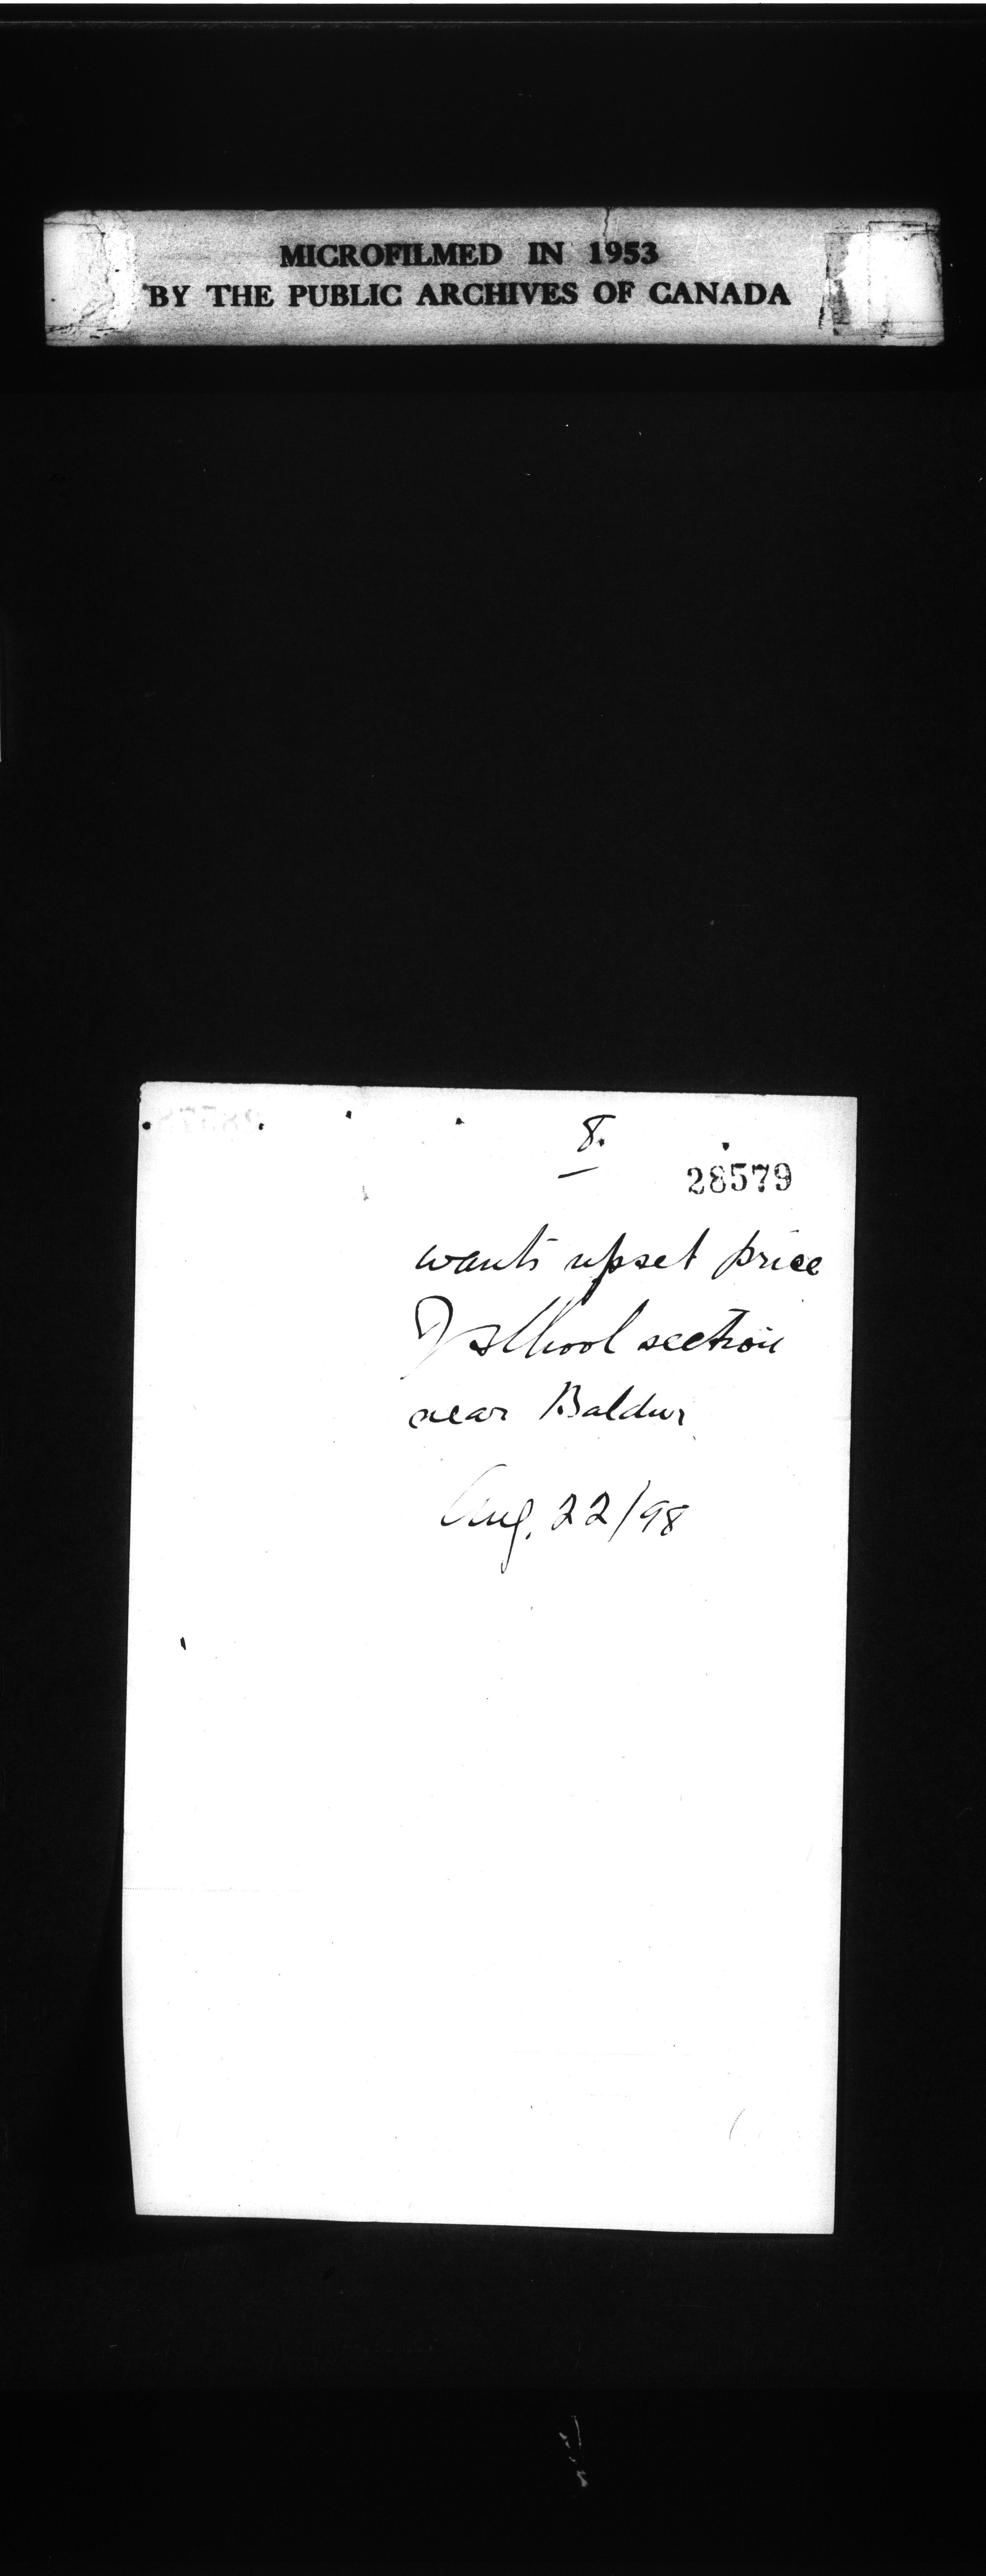 MICROFILMED IN 1953
BY THE PUBLIC ARCHIVES OF CANADA
8.
28579
wants upset price
of school section
near Baldur
Aug. 22/98